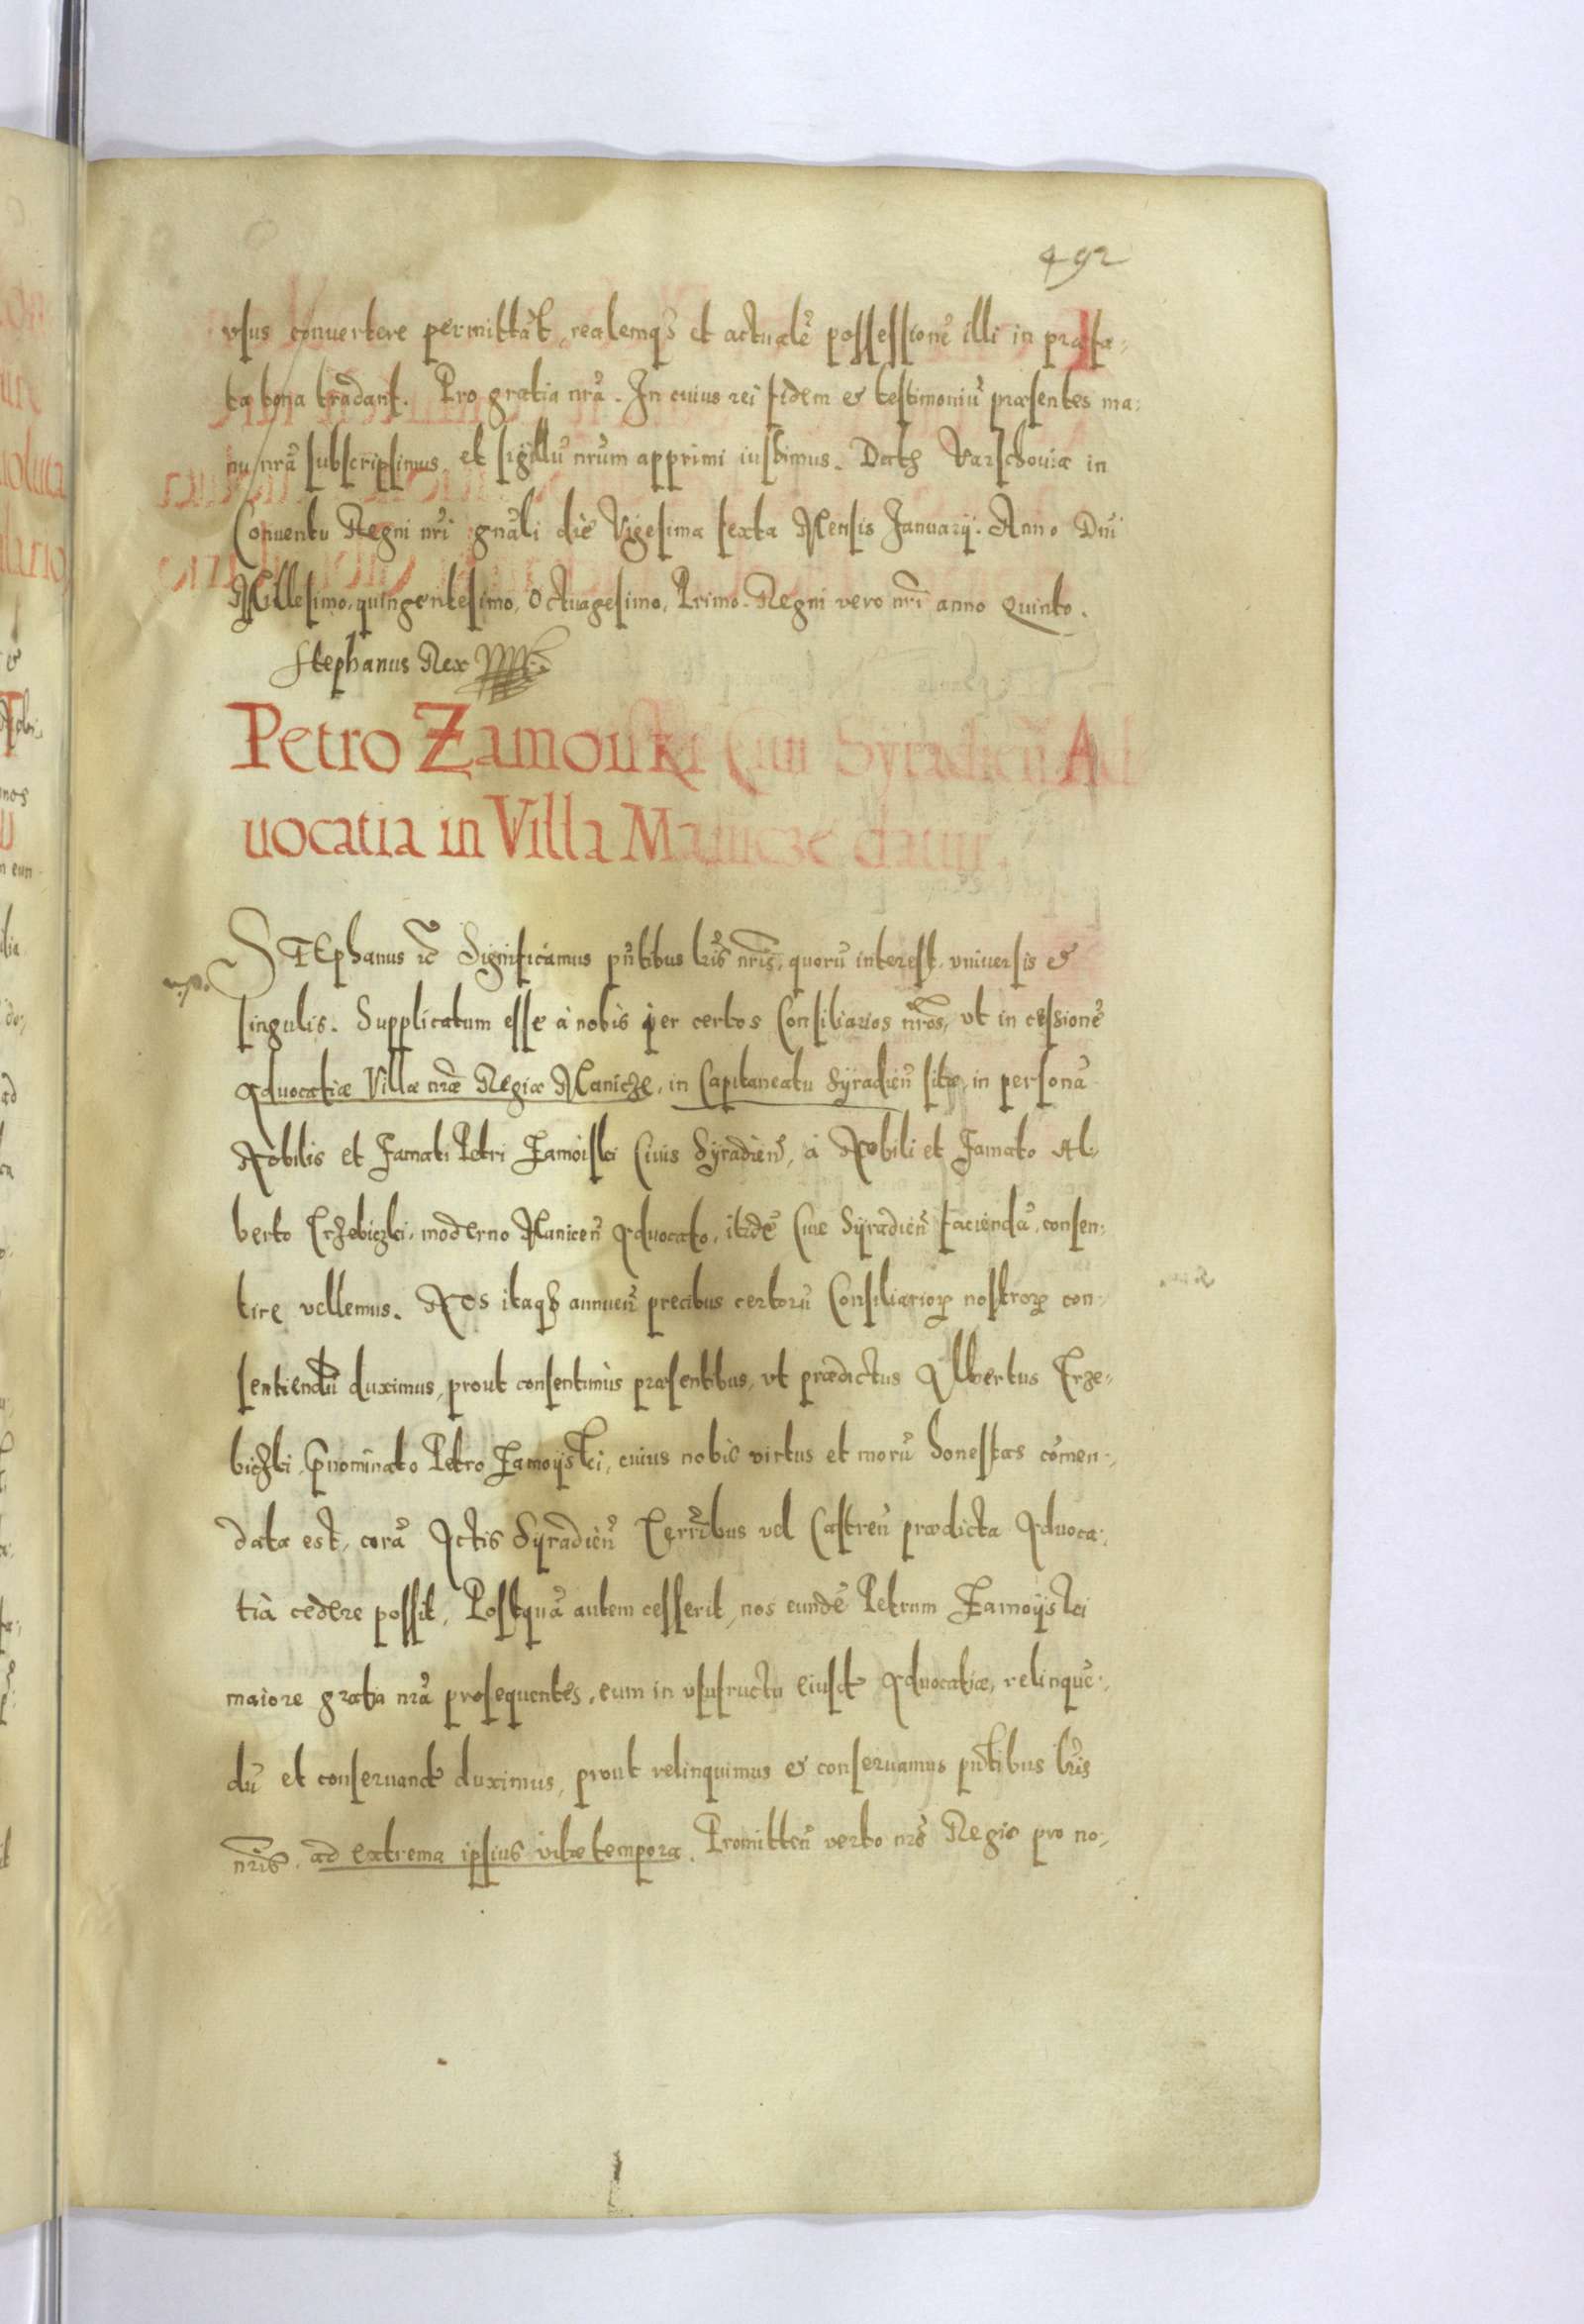 492
vsus conuertere permittāt, realemq₃ et actualē possessionē illi in præfa-
ta bona tradant. Pro gratia nrā. In cuius rei fidem & testimoniū præsentes ma-
nu nrā subscripsimus, et sigillū nrūm apprimi iussimus. Datȝ Varschouiæ in
Conuentu Regni nrī gnāli diē Vigesima sexta Mensis Januarÿ. Anno Dnī
Millesimo, quingentesimo, Octuagesimo, Primo. Regni vero nrī anno Quinto.
Stephanus Rex
Petro Zamoiiski Ciui Syradieñ Ad
uocatia in Villa Manicze datur.
STEphanus rc̄ Significamus pn̄tibus lrīs nrīs, quorū interest, vniuersis &
singulis. Supplicatum esse à nobis per certos Consiliarios nrōs, vt in cessionē
Aduocatiæ Villæ nræ Regiæ Manicze, in Capitaneatu Syradieñ sitæ, in personā
Nobilis et Famati Petri Zamoiski Ciuis Syradieñ, à Nobili et Famato Al-
berto Trzebiczki, moderno Maniceñ Aduocato, itidē Ciue Syradieñ faciendā, consen-
tire vellemus. Nos itaq₃ annueñ precibus certorū Consiliarioꝝ nostroꝝ con-
sentiendū duximus, prout consentimùs præsentibus, vt prædictus Albertus Trze-
biczki, Prænominato Petro Zamoÿski, cuius nobis virtus et morū honestas cōmen-
data est, corā Actis Syradieñ Terrībus vel Castreñ prædicta Aduoca-
tià cedere possit, Postquā autem cesserit, nos eundē Petrum Zamoÿski
maiore gratia nrā prosequentes, eum in vsufructu eiusd' Aduocatiæ, relinquē-
dū et conseruand' duximus, prout relinquimus & conseruamus pn̄tibus lrīs
nrīs, ad extrema ipsius vitæ tempora. Promitteñ verbo nrō Regio pro no-